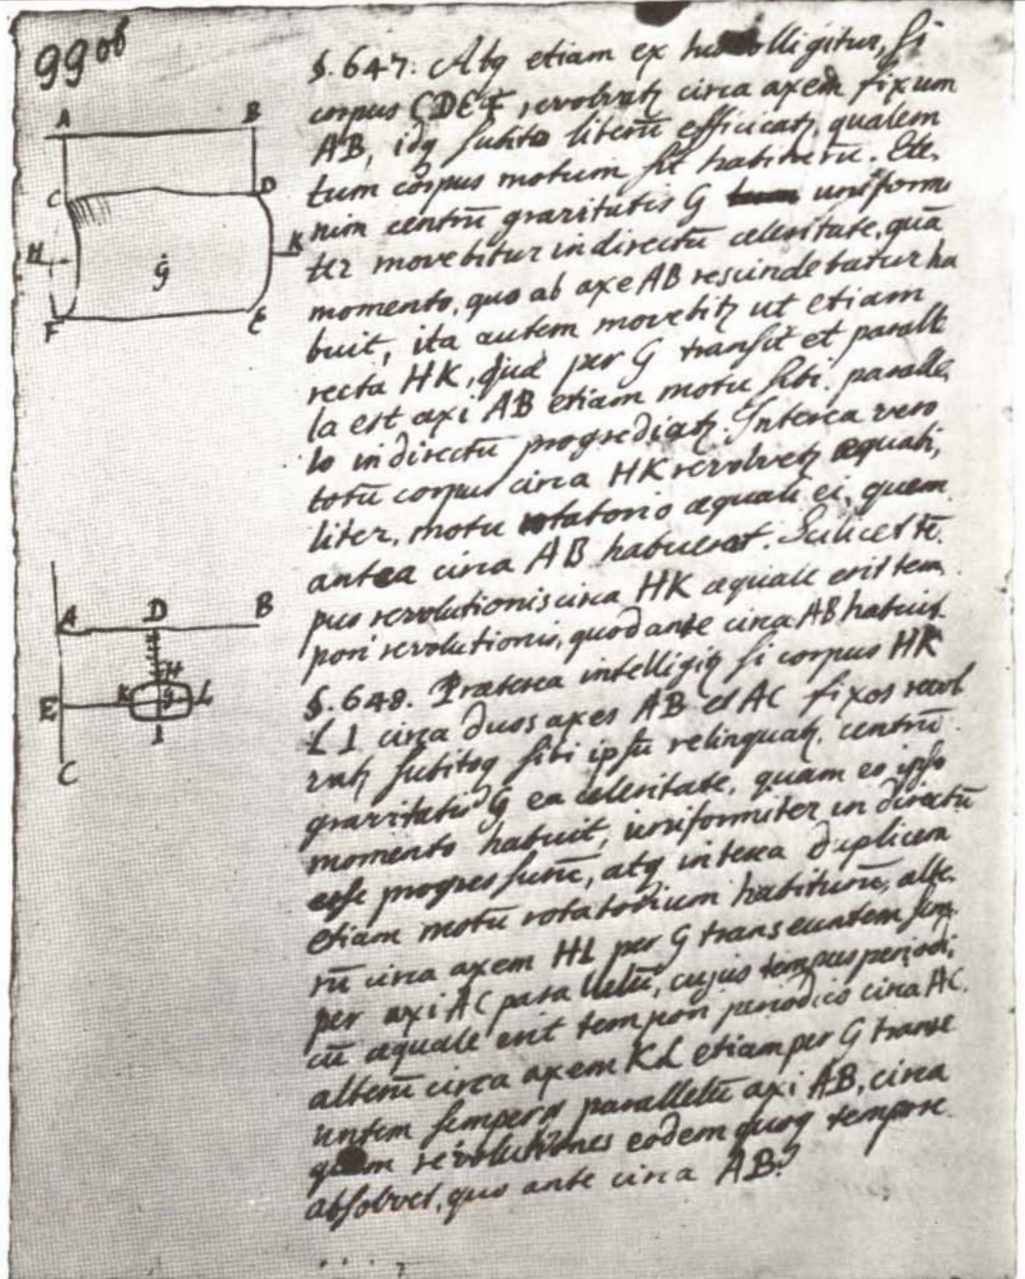 99 об
§. 647. Atq etiam ex hu colligitur, si
corpus CDEF, revolvatꝫ circa axem fixum
AB, idq subito liberū efficiatꝫ, qualem
tum corpus motum sit habiturū. Ete
nim centrū gravitatis G uniformi
ter movebitur in directū celeritate, quā
momento, quo ab axe AB rescindebatur ha
buit, ita autem movebitꝫ ut etiam
recta HK, quæ per G transit et paralle
la est axi AB etiam motu sibi paralle
lo in directū progrediatꝫ. Interea vero
totū corpus circa HK revolvetꝫ æquabi,
liter, motu rotatorio æquali ei, quem
antea circa AB habuerat. Scilicet tē
pus revolutionis circa HK æquale erit tem
pori revolutionis, quod ante circa AB habuit.
§. 648. Præterea intelligitꝫ si corpus HK
LI circa duos axes AB et AC fixos revol
vatꝫ subitoq sibi ipsū relinquatꝫ, centrū
gravitatis G ea celeritate, quam eo ipso
momento habuit, uniformiter in directū
esse progressurū, atq interea duplicem
etiam motū rotatorium habiturū, alte
rū circa axem HL per G transeuntem sem
per axi AC parallelū, cujus tempus periodi,
cū æquale erit tempori periodico circa AC.
alterū circa axem KL etiam per G transe
untem semperq parallelū axi AB, circa
quem revolutiones eodem quoq tempore
absolvet, quo ante circa AB.
A B
C D
H G K
F E
A D B
H
E K G L
I
C